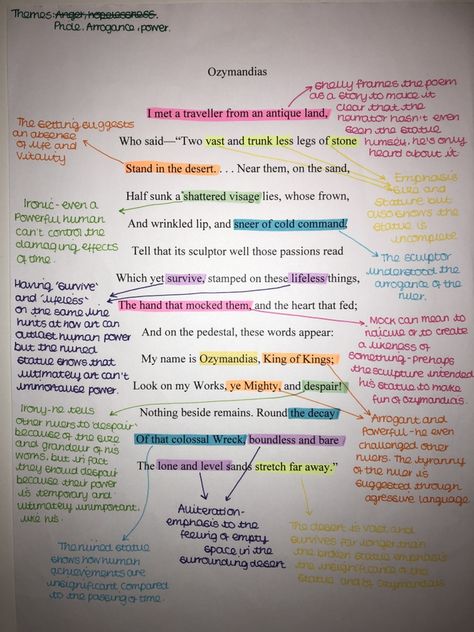 Themes: Anger, hopelessness.
Pride, Arrogance, power.
Ozymandias
I met a traveller from an antique land,
Who said—“Two vast and trunk less legs of stone
Stand in the desert. . . . Near them, on the sand,
Half sunk a shattered visage lies, whose frown,
And wrinkled lip, and sneer of cold command,
Tell that its sculptor well those passions read
Which yet survive, stamped on these lifeless things,
The hand that mocked them, and the heart that fed;
And on the pedestal, these words appear:
My name is Ozymandias, King of Kings;
Look on my Works, ye Mighty, and despair!
Nothing beside remains. Round the decay
Of that colossal Wreck, boundless and bare
The lone and level sands stretch far away.”
Shelly frames the poem
as a story to make it
clear that the
narrator hasn't even
seen the statue
himself, he's only
heard about it
The setting suggests
an absence
of life and
vitality
Emphasis
size and
stature but
also shows the
statue is
incomplete.
Ironic - even a
Powerful human
can't control the
damaging effects
of time.
The sculptor
understood the
arrogance of the
ruler.
Having 'survive'
and 'lifeless'
on the same line
hints at how art can
outlast human power
but the ruined
statue shows that
ultimately art can't
immortalise power.
Mock can mean to
ridicule or to create
a likeness of
something - prehaps
the sculpture intended
his statue to make
fun of ozymandias.
Irony - he tells
other rulers to 'despair'
because of the size
and grandeur of his
works, but in fact
they should despair
because their power
is temporary and
ultimately unimportant,
like his.
Arrogant and
Powerful - he even
challenged other
rulers. The tyranny
of the ruler is
suggested through
agressive language.
Alliteration -
emphasis to the
feeling of empty
space in the
surrounding desert
The ruined statue
shows how human
achievements are
insignificant compared
to the passing of time.
The desert is vast and
survives far longer than
the broken statue emphasis
the insignificance of the
statue and of Ozymandias